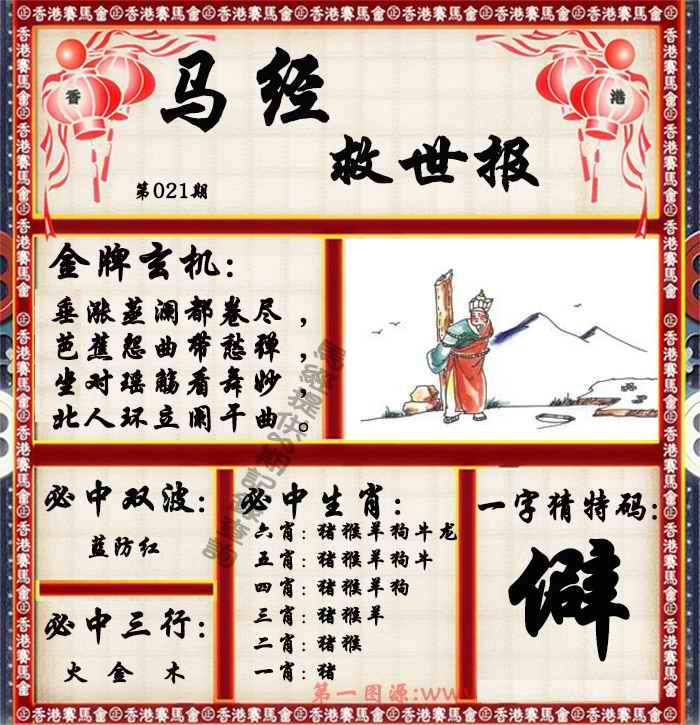 香港賽馬會
香
港
马经
救世报
第021期
金牌玄机：
垂涨蒸澜都卷尽，
芭蕉怨曲带愁弹，
坐对瑶觞看舞妙，
北人环立阑干曲。
必中双波：
蓝防红
必中三行：
火 金 木
必中生肖：
六肖：猪猴羊狗牛龙
五肖：猪猴羊狗牛
四肖：猪猴羊狗
三肖：猪猴羊
二肖：猪猴
一肖：猪
一字猜特码：
僻
第一图源:www